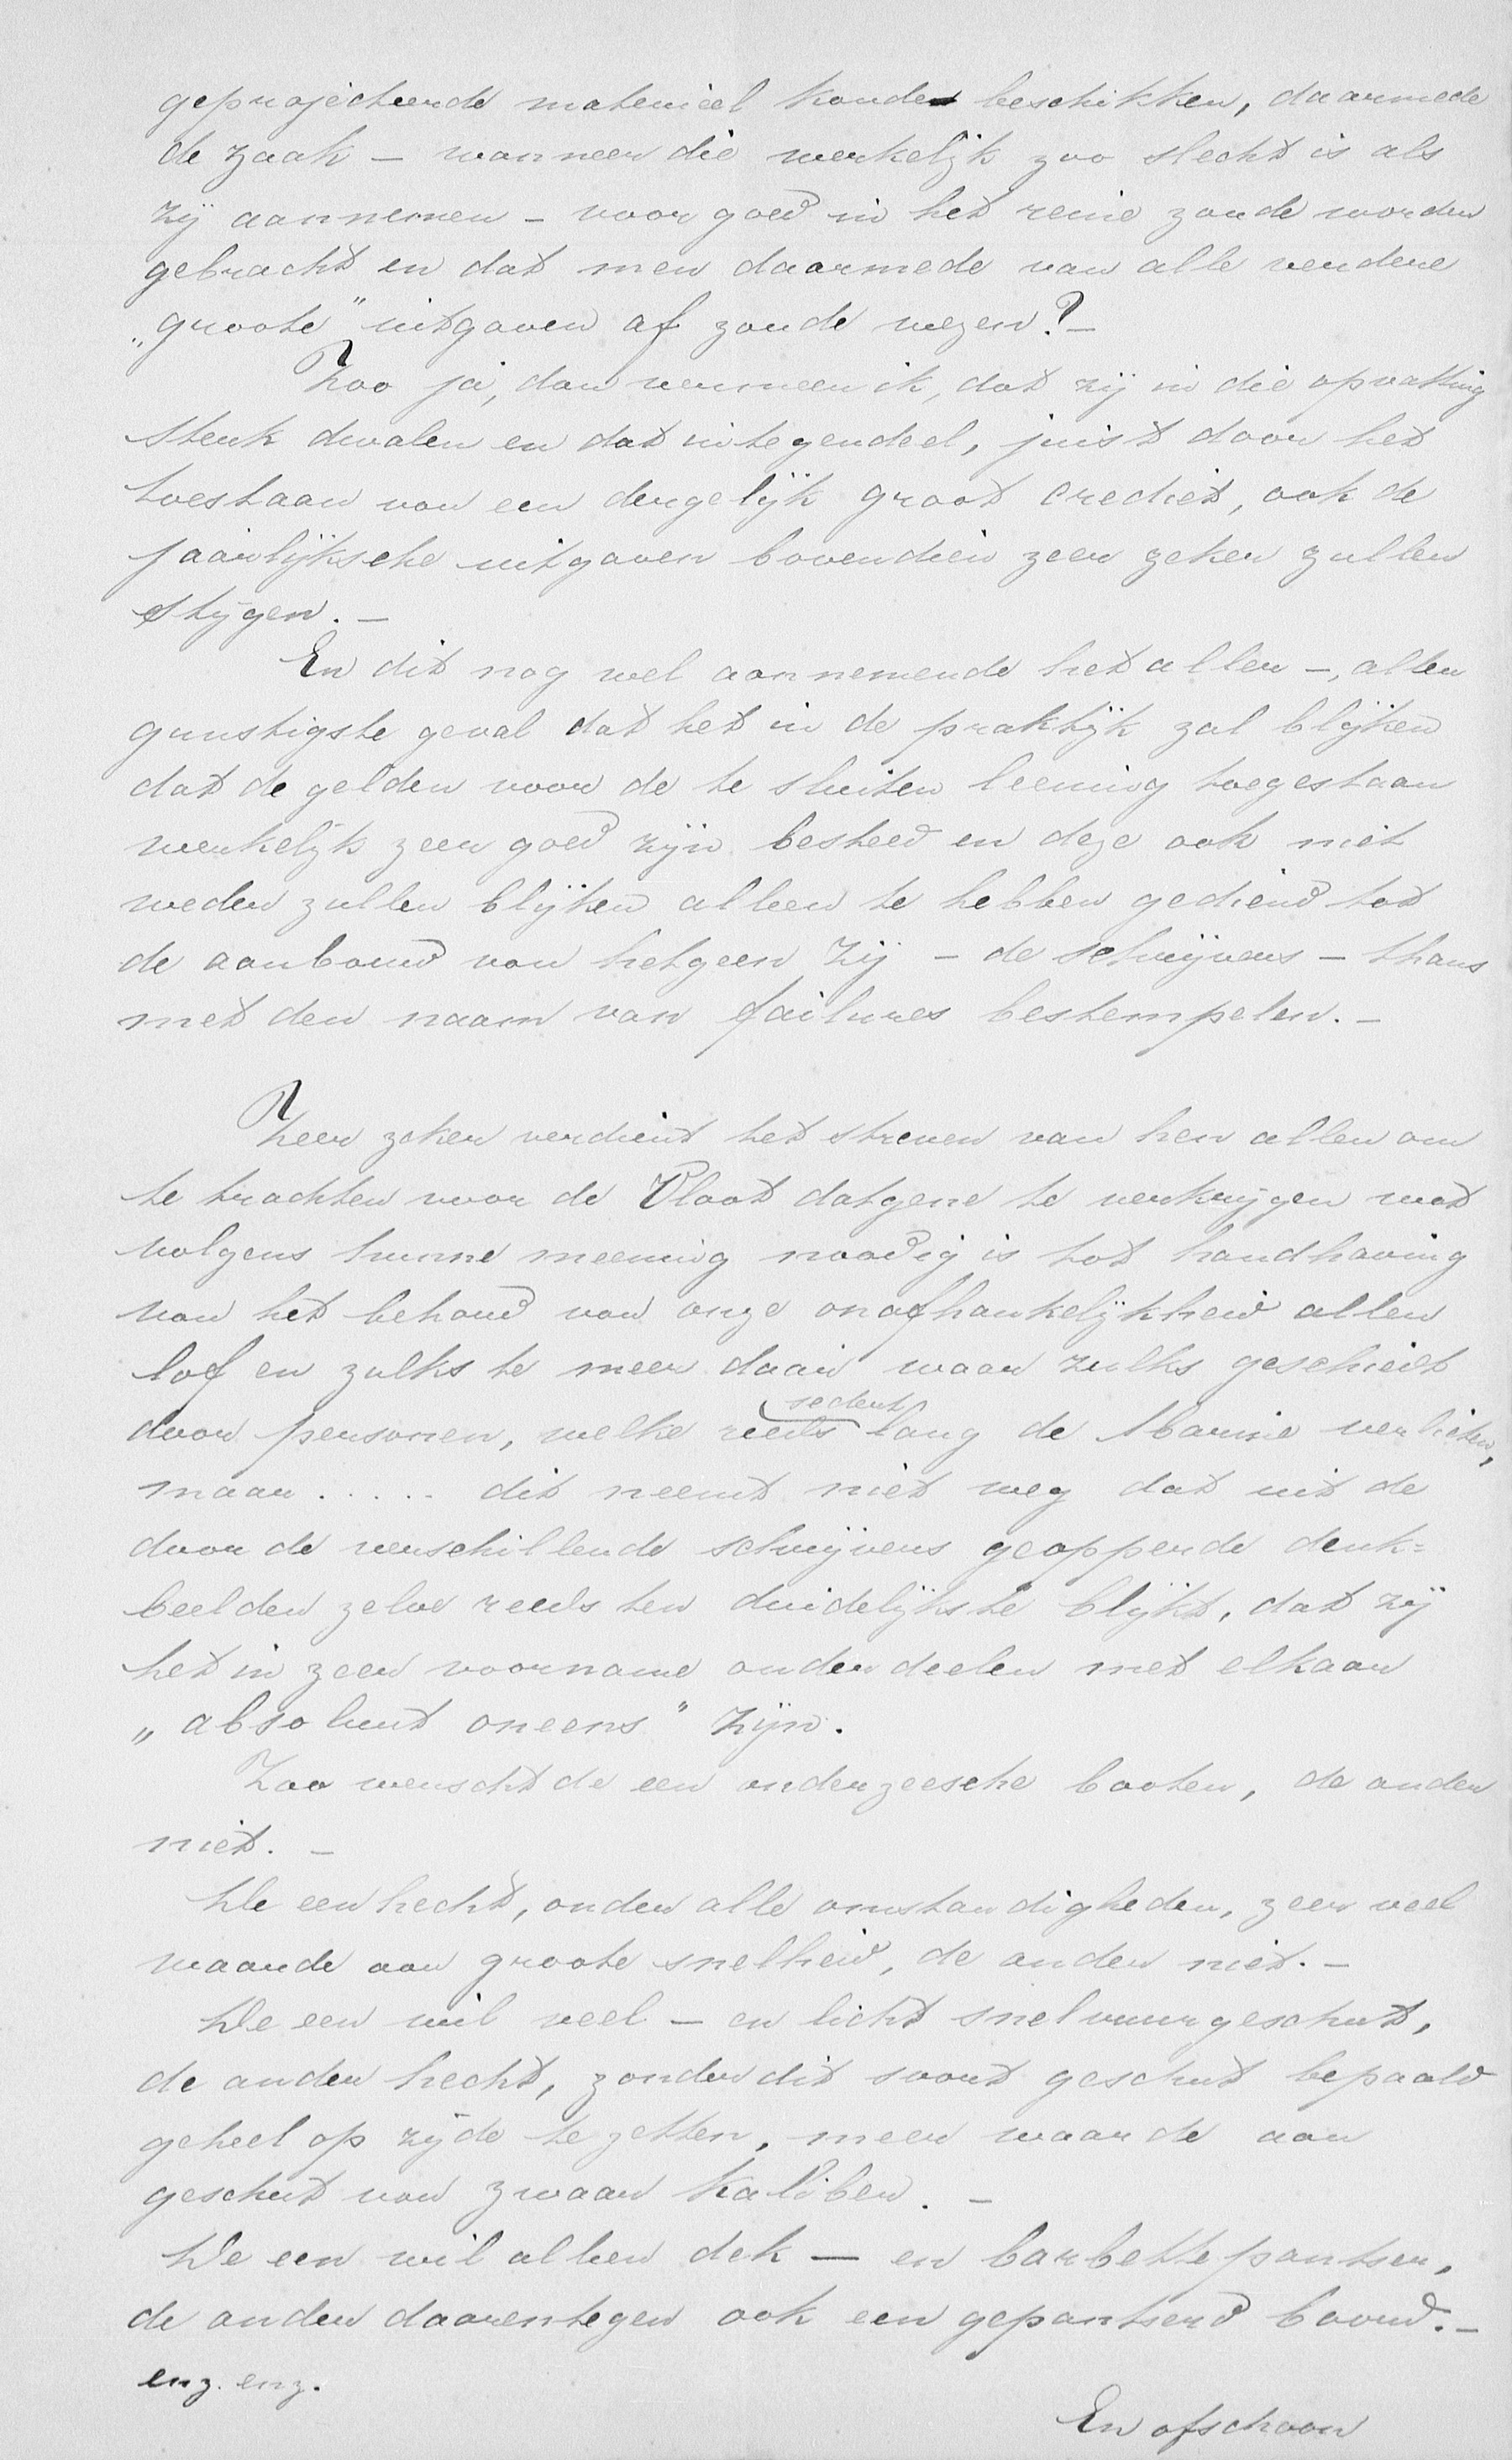 geprojecteerde materieel konde beschikken, daarmede
de zaak — wanneer die werkelijk zoo slecht is als
zij aannemen — voor goed in het reine zoude worden
gebracht en dat men daarmede van alle verdere
„groote" uitgaven af zoude wezen? —
Zoo ja, dan vermeen ik, dat zij in die opvatting
sterk dwalen en dat integendeel, juist door het
toestaan van een dergelijk groot crediet, ook de
jaarlijksche uitgaven bovendien zeer zeker zullen
stijgen. —
En dit nog wel aannemende het aller —, aller
gunstigste geval dat het in de praktijk zal blijken
dat de gelden voor de te sluiten leening toegestaan
werkelijk zeer goed zijn besteed en deze ook niet
weder zullen blijken alleen te hebben gediend tot
de aanbouw van hetgeen zij — de schrijvers — thans
met den naam van failures bestempelen. —
Zeer zeker verdient het streven van hen allen om
te trachten voor de Vloot datgene te verkrijgen wat
volgens hunne meening noodig is tot handhaving
van het behoud van onze onafhankelijkheid allen
lof en zulks te meer daar waar zulks geschiedt
sedert
door personen, welke reeds lang de Marine verlieten,
maar ..... dit neemt niet weg dat uit de
door de verschillende schrijvers geopperde denk=
beelden zelve reeds ten duidelijkste blijkt, dat zij
het in zeer voorname onderdeelen met elkaar
„absoluut oneens" zijn.
Zoo wenscht de een onderzeesche booten, de ander
niet. —
De een hecht, onder alle omstandigheden, zeer veel
waarde aan groote snelheid, de ander niet. —
De een wil veel — en licht snelvuurgeschut,
de ander hecht, zonder dit soort geschut bepaald
geheel op zijde te zetten, meer waarde aan
geschut van zwaar kaliber. —
De een wil alleen dek — en barbettepantser,
de ander daarentegen ook een gepantserd boord. —
enz. enz.
En ofschoon